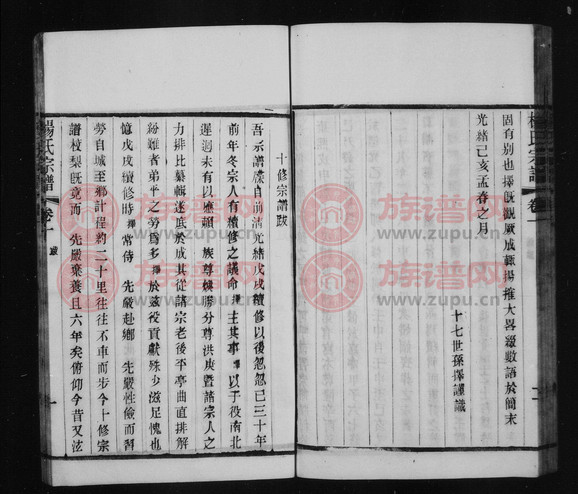 固有別也擇既觀厥成謹揚搉大畧綴數語於簡末
光緒己亥孟春之月
十七世孫擇謹識
楊氏宗譜
卷一
十修宗譜跋
吾宗譜牒自前清光緒戊戌續修以後忽忽已三十年
前年冬宗人有續修之議命擇主其事擇以于役南北
遲迴未有以應賴 族尊煥勝分尊洪庚暨諸宗人之
力排比纂輯遂底於成其從諸宗老後平亭曲直排解
紛難者弟平之勞爲多擇於茲役貢獻殊少滋足愧也
憶戊戌續修時擇常侍 先嚴赴鄉 先嚴性儉而習
勞自城至鄉計程約二十里往往不車而步今十修宗
譜校梨既竟而 先嚴棄養且六年矣俯仰今昔又泫
楊氏宗譜
卷一
跋
一
族谱网
www.zupu.cn
族谱网
www.zupu.cn
族谱网
www.zupu.cn
族谱网
www.zupu.cn